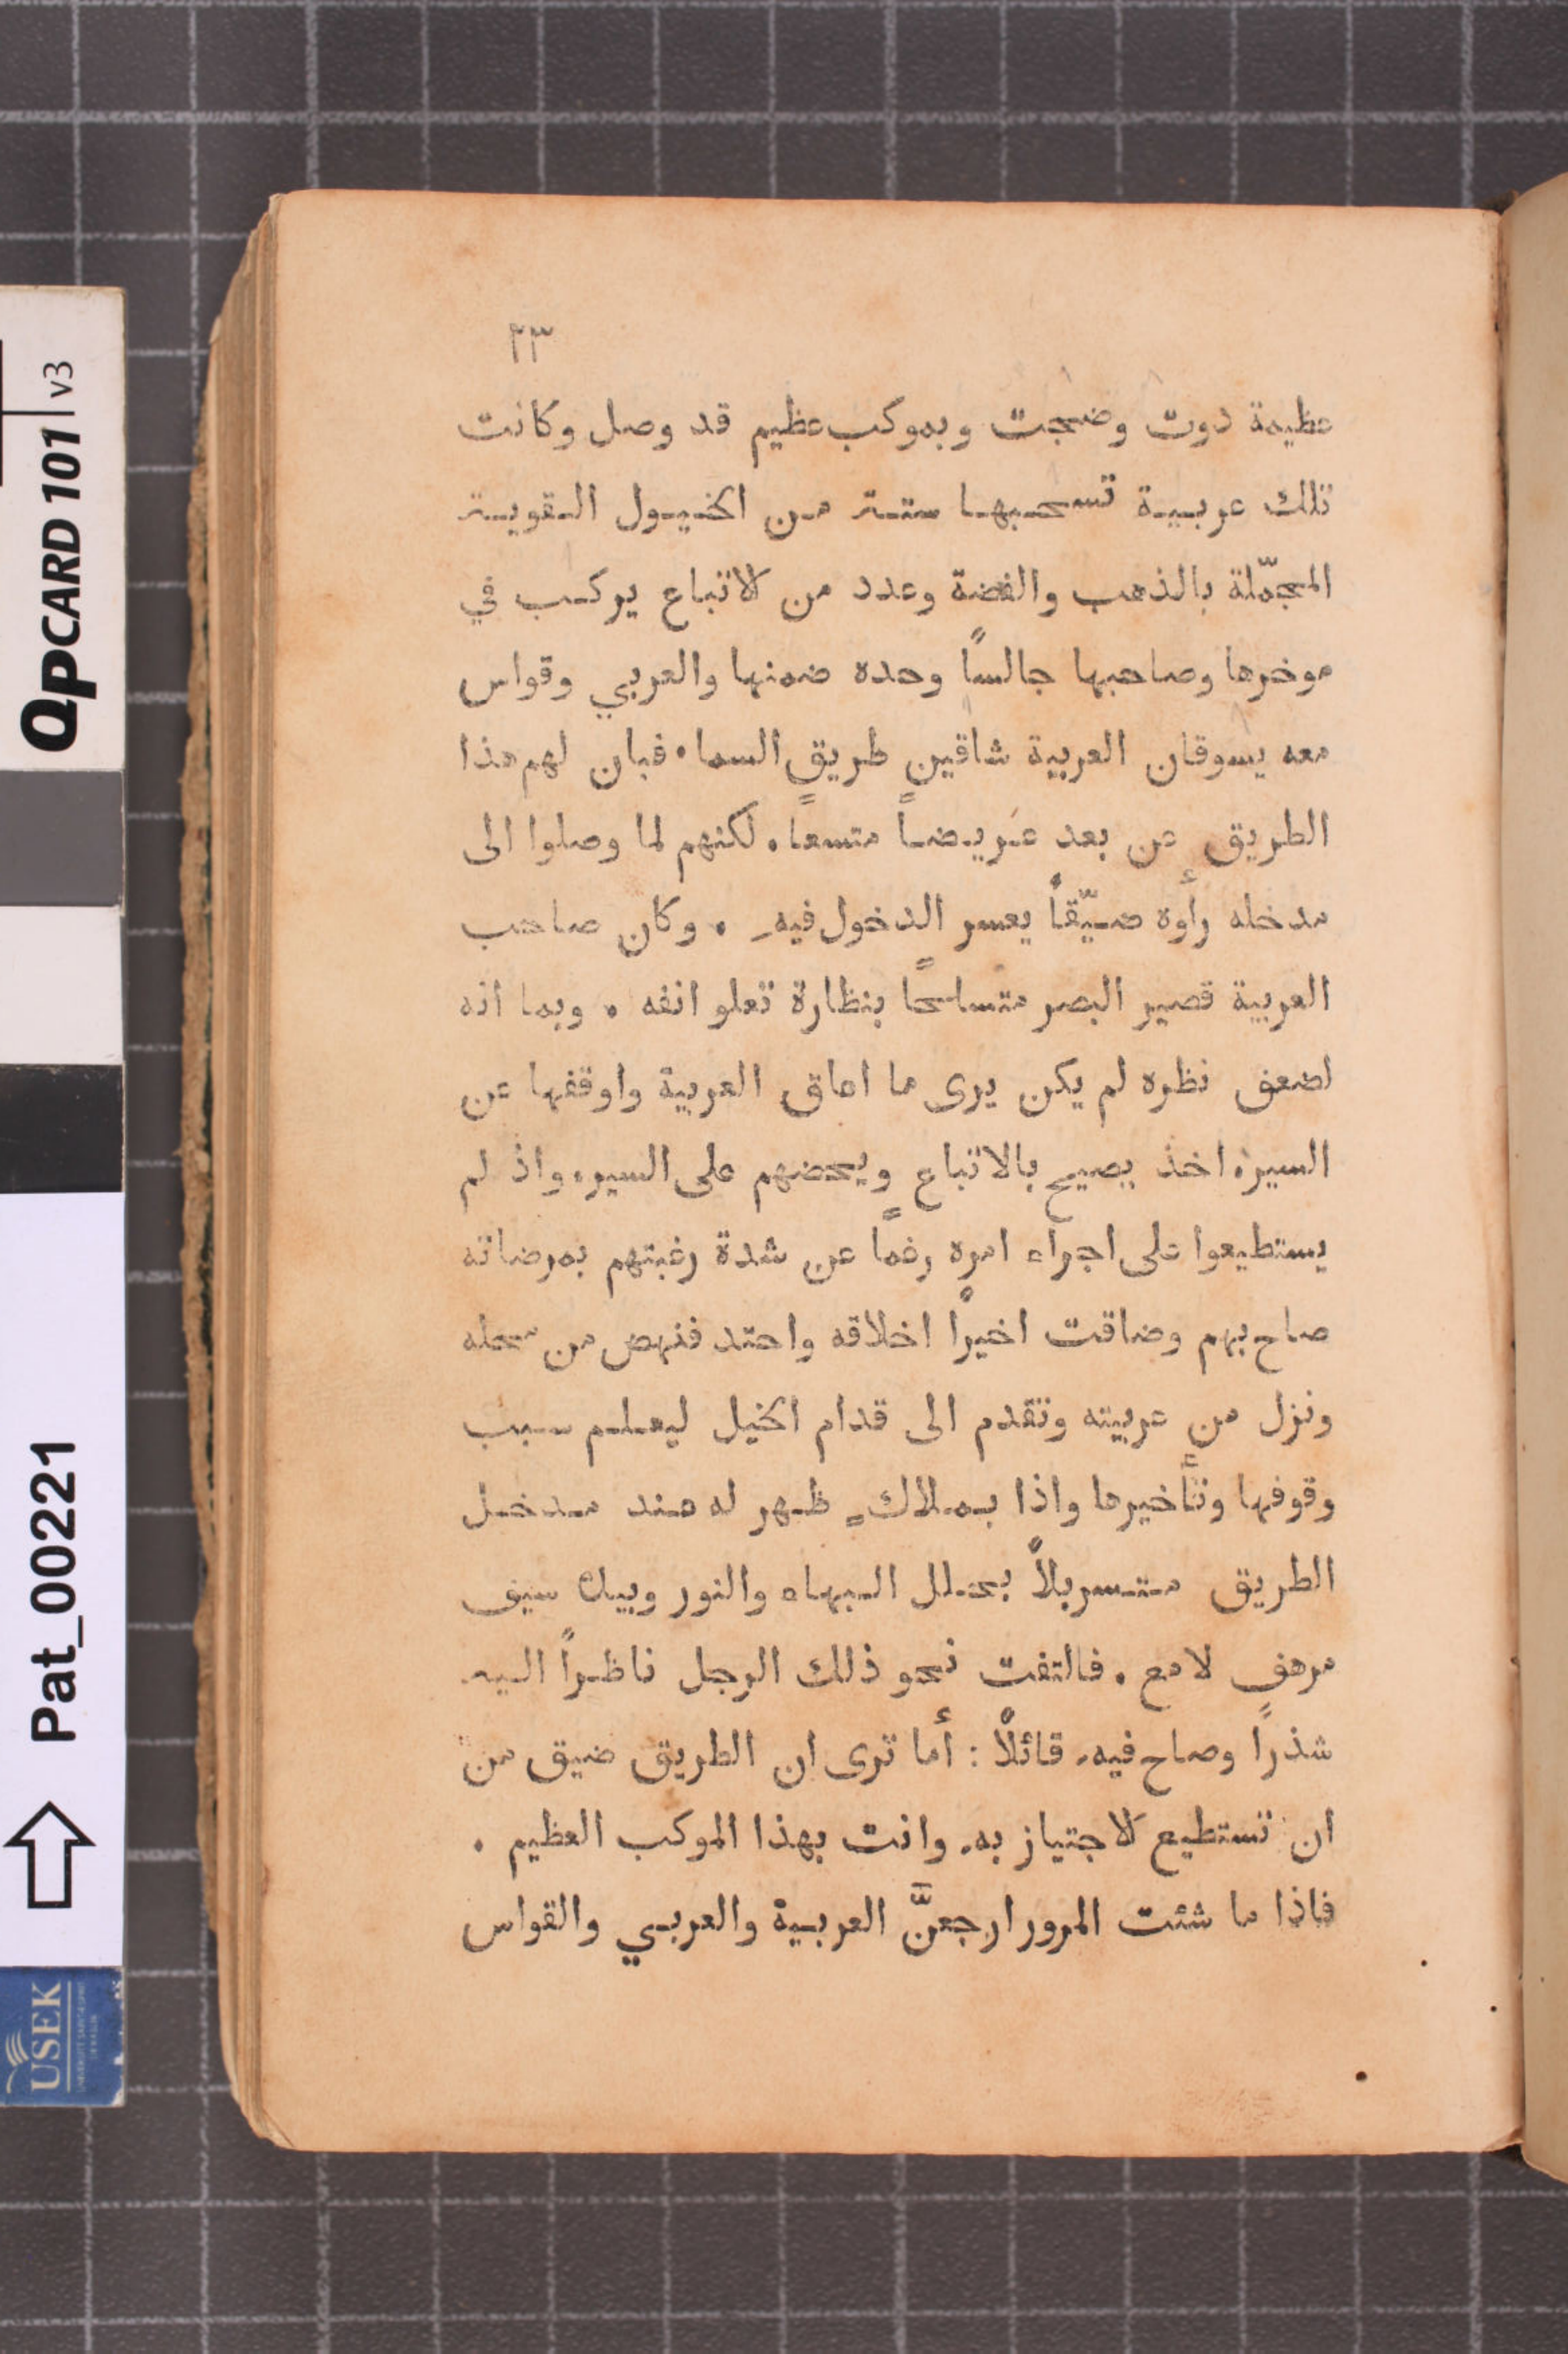 ٢٣
عظيمة دوت وضجت وبموكب عظيم قد وصل وكانت
تلك عربية تسحبها ستة من الخيول القوية
المجمّلة بالذهب والفضة وعدد من الاتباع يركب في
موخرها وصاحبها جالسًا وحده ضمنها والعربي وقواس
معه يسوقان العربية شاقين طريق السما. فبان لهم هذا
الطريق عن بعد عريضاً متسعًا. لكنهم لما وصلوا الى
مدخله رأوه ضيّقاً يعسر الدخول فيه. وكان صاحب
العربية قصير البصر متسلحًا بنظارة تعلو انفه. وبما انه
لضعف نظره لم يكن يرى ما اعاق العربية واوقفها عن
السير، اخذ يصيح بالاتباع ويحضهم على السير، واذ لم
يستطيعوا على اجراء امره رغمًا عن شدة رغبتهم بمرضاته
صاح بهم وضاقت اخيرًا اخلاقه واحتد فنهض من محله
ونزل من عربيته وتقدم الى قدام الخيل ليعلم سبب
وقوفها وتأخيرها واذا بملاك ظهر له عند مدخل
الطريق متسربلاً بحلل البهاء والنور وبيده سيف
مرهف لامع. فالتفت نحو ذلك الرجل ناظراً اليه
شذرًا وصاح فيه قائلًا: أما ترى ان الطريق ضيق من
ان تستطيع الاجتياز به وانت بهذا الموكب العظيم.
فاذا ما شئت المرور ارجعنَّ العربية والعربي والقواس
QPCARD 101 v3
Pat_00221
USEK